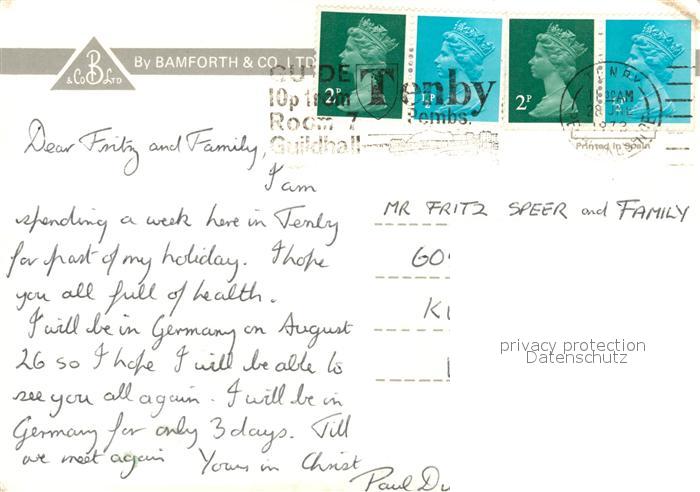 By BAMFORTH & CO. LTD
B
& Co LTD
GUIDE
10p from
Room 7
Guildhall
Tenby
Pembs.
2P
½P
2P
½P
Printed in Spain
Dear Fritz and Family,
I am
spending a week here in Tenby
for part of my holiday. I hope
you all full of health.
I will be in Germany on August
26 so I hope I will be able to
see you all again. I will be in
Germany for only 3 days. Till
we meet again Yours in Christ
Paul
MR FRITZ SPEER and FAMILY
privacy protection
Datenschutz